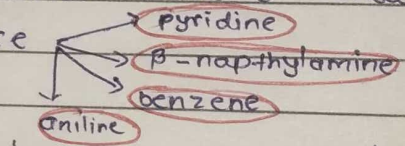 e
pyridine
β-napthylamine
benzene
aniline